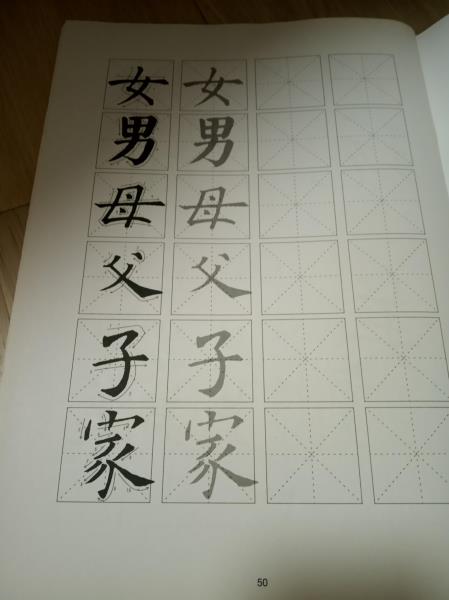 女 女
男 男
母 母
父 父
子 子
家 家
50